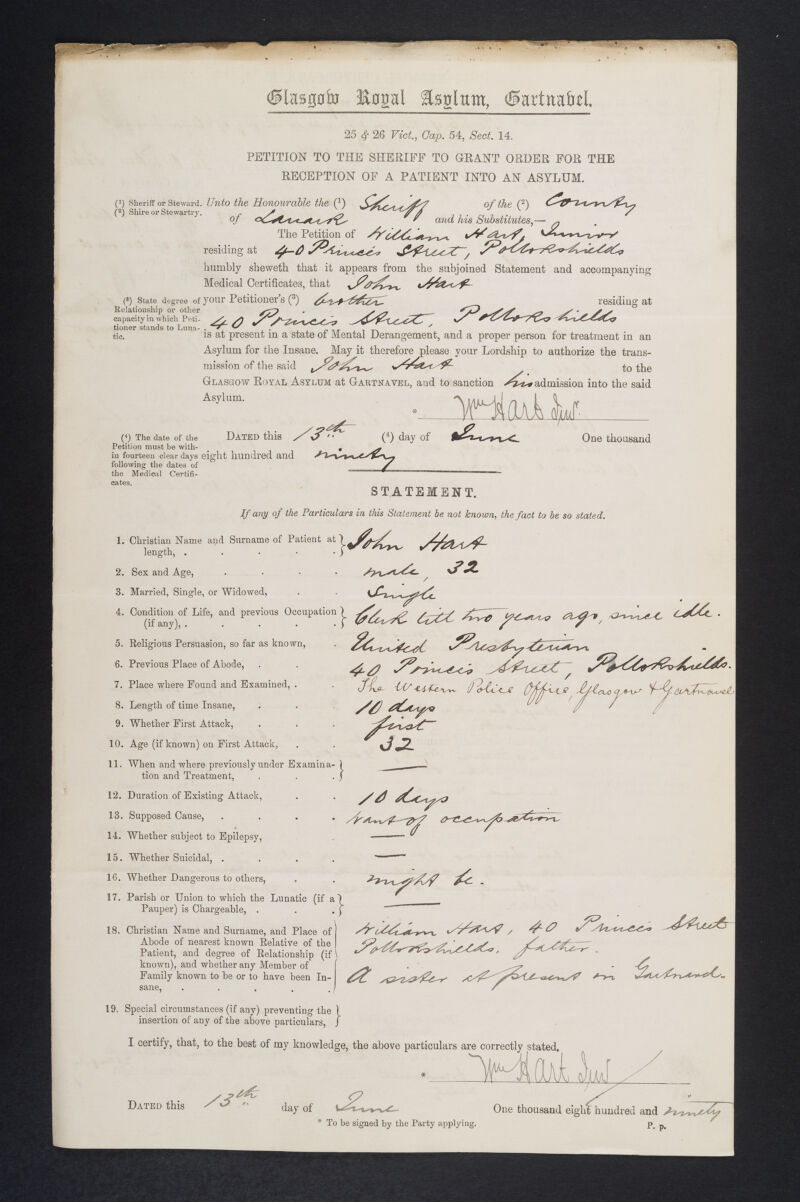 Glasgow Royal Asylum, Gartnavel.
25 & 26 Vict., Cap. 54, Sect. 14.
PETITION TO THE SHERIFF TO GRANT ORDER FOR THE
RECEPTION OF A PATIENT INTO AN ASYLUM.
(1) Sheriff or Steward.
(2) Shire or Stewartry.
Unto the Honourable the (1) Sheriff of the (2) County
of Lanark and his Substitutes,—
The Petition of William Hart, Junior
residing at 40 Princes Street, Pollokshields
humbly sheweth that it appears from the subjoined Statement and accompanying
Medical Certificates, that John Hart
(3) State degree of
Relationship or other
capacity in which Peti-
tioner stands to Luna-
tic.
your Petitioner's (3) brother residing at
40 Princes Street, Pollokshields
is at present in a state of Mental Derangement, and a proper person for treatment in an
Asylum for the Insane. May it therefore please your Lordship to authorize the trans-
mission of the said John Hart to the
GLASGOW ROYAL ASYLUM at GARTNAVEL, and to sanction his admission into the said
Asylum.
* Wm Hart Junr.
(4) The date of the
Petition must be with-
in fourteen clear days
following the dates of
the Medical Certifi-
cates.
DATED this 13th (4) day of June One thousand
eight hundred and ninety
STATEMENT.
If any of the Particulars in this Statement be not known, the fact to be so stated.
1. Christian Name and Surname of Patient at
length, . . . . . } John Hart
2. Sex and Age, . . . . male, 32
3. Married, Single, or Widowed, . . Single
4. Condition of Life, and previous Occupation
(if any), . . . . . } Clerk till two years ago, since idle.
5. Religious Persuasion, so far as known, . United Presbyterian
6. Previous Place of Abode, . . 40 Princes Street, Pollokshields.
7. Place where Found and Examined, . . The Western Police Office, Glasgow & Gartnavel
8. Length of time Insane, . . 10 days
9. Whether First Attack, . . . first
10. Age (if known) on First Attack, . . 32
11. When and where previously under Examina-
tion and Treatment, . . . } —
12. Duration of Existing Attack, . . 10 days
13. Supposed Cause, . . . . Want of occupation
14. Whether subject to Epilepsy, . —
15. Whether Suicidal, . . . . —
16. Whether Dangerous to others, . . might be.
17. Parish or Union to which the Lunatic (if a
Pauper) is Chargeable, . . . } —
18. Christian Name and Surname, and Place of
Abode of nearest known Relative of the
Patient, and degree of Relationship (if
known), and whether any Member of
Family known to be or to have been In-
sane, . . . . .
William Hart, 40 Princes Street
Pollokshields. father.
A sister at present in Gartnavel.
19. Special circumstances (if any) preventing the
insertion of any of the above particulars, }
I certify, that, to the best of my knowledge, the above particulars are correctly stated.
* Wm Hart Junr
DATED this 13th day of June One thousand eight hundred and ninety
* To be signed by the Party applying.
P. p.